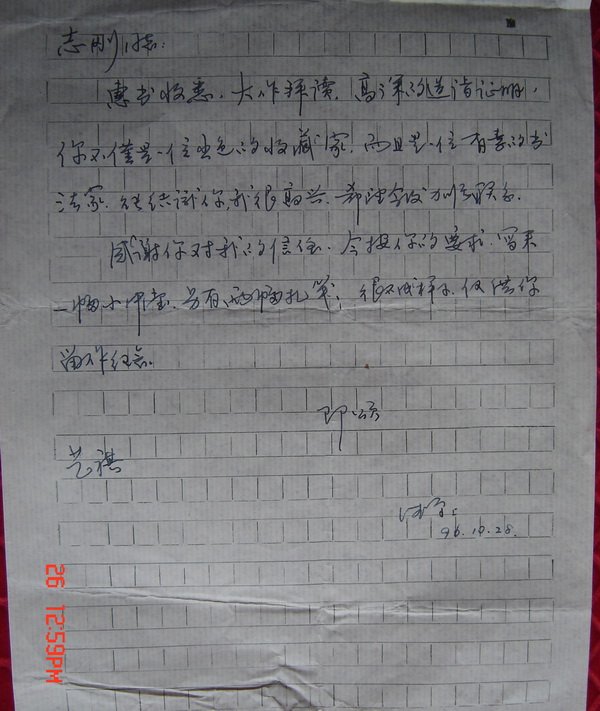 志刚同志:
惠书收悉,大作拜读,高深的造诣证明,
你不仅是一位出色的收藏家,而且是一位有素的书
法家,能结识你,我很高兴,希望今后加强联系。
感谢你对我的信任,今按你的要求,写来
一幅小中堂,另有两幅扎笔,很不成样子,仅供你
留作纪念。
即颂
艺祺
96.10.28.
26 12:59PM